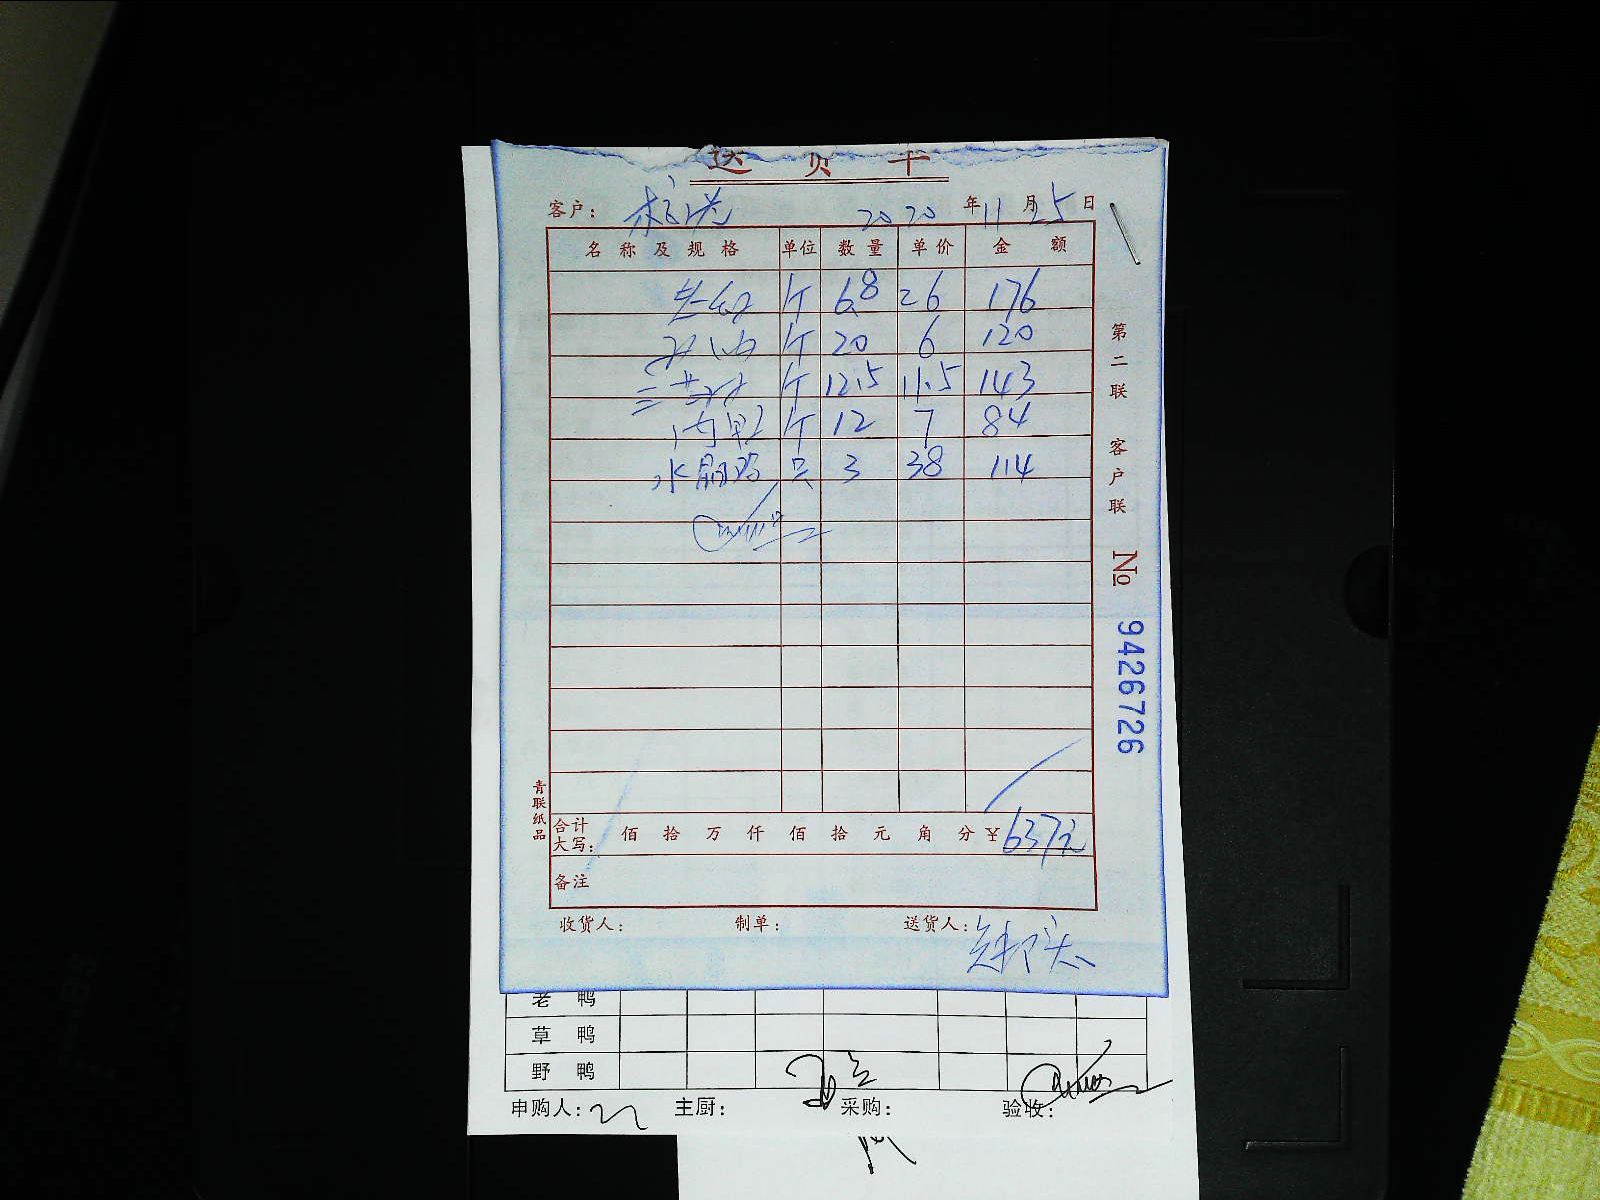 送 货 单
客户： 2020 年 11 月 25 日
名称及规格 单位 数量 单价 金额
个 6.8 26 176
个 20 6 120
个 12.5 11.5 143
个 12 7 84
水晶鸡 只 3 38 114
合计大写： 佰 拾 万 仟 佰 拾 元 角 分 ¥637元
备注
收货人： 制单： 送货人：
第二联 客户联
№ 9426726
青联纸品
老鸭
草鸭
野鸭
申购人： 主厨： 采购： 验收：